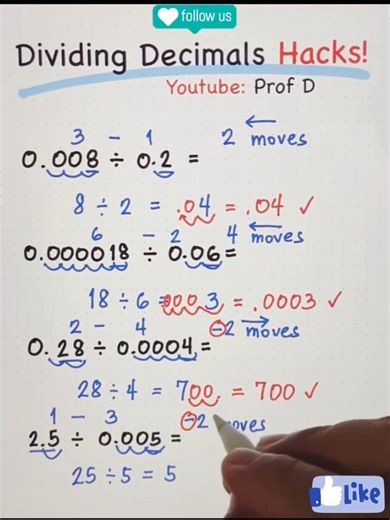 follow us
Dividing Decimals Hacks!
Youtube: Prof D
3 - 1 2 moves
0.008 ÷ 0.2 =
8 ÷ 2 = .04 = .04 ✓
6 - 2 4 moves
0.000018 ÷ 0.06 =
18 ÷ 6 = 0003 = .0003 ✓
2 - 4 -2 moves
0.28 ÷ 0.0004 =
28 ÷ 4 = 700 = 700 ✓
1 - 3 -2 moves
2.5 ÷ 0.005 =
25 ÷ 5 = 5
Like